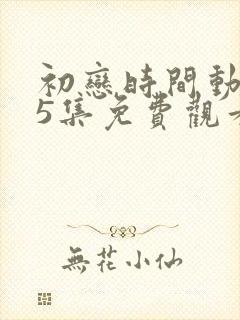 初戀時間動
5集免費觀
無花小仙